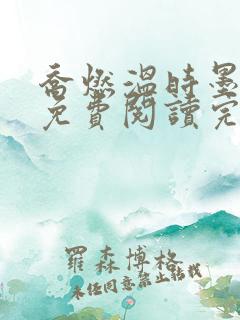 喬燃溫時墨
免費閱讀完
羅森博格
未经同意禁止转载